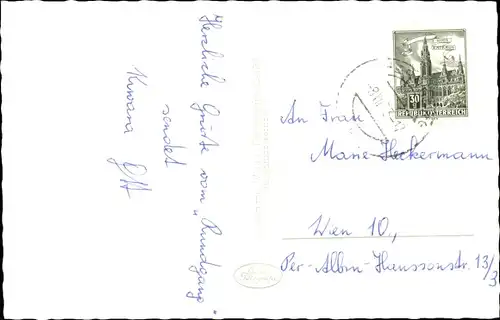 Herzliche Grüße vom „Rundgang"
sendet
30
REPUBLIK ÖSTERREICH
An Frau
Marie Heckermann
Wien 10.,
Per-Albin-Hanssonstr. 13/3